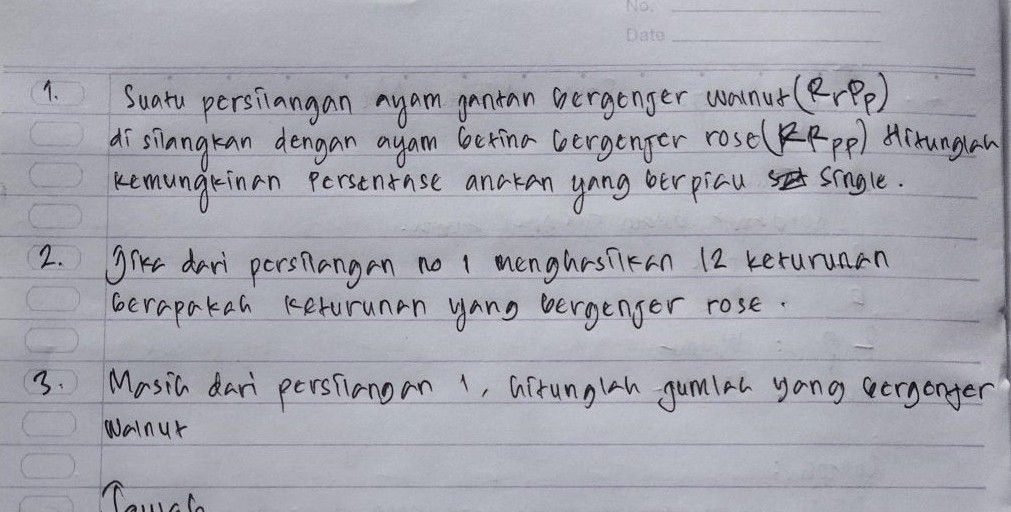 No.
Date
1. Suatu persilangan ayam jantan bergenjer walnut (RrPp)
di silangkan dengan ayam betina bergenjer rose (RRpp) Hitunglah
kemungkinan Persentase anakan yang berpiau single.
2. Jika dari persilangan no 1 menghasilkan 12 keturunan
berapakah keturunan yang bergenjer rose.
3. Masih dari persilangan 1, hitunglah jumlah yang bergenjer
walnut
Jawab